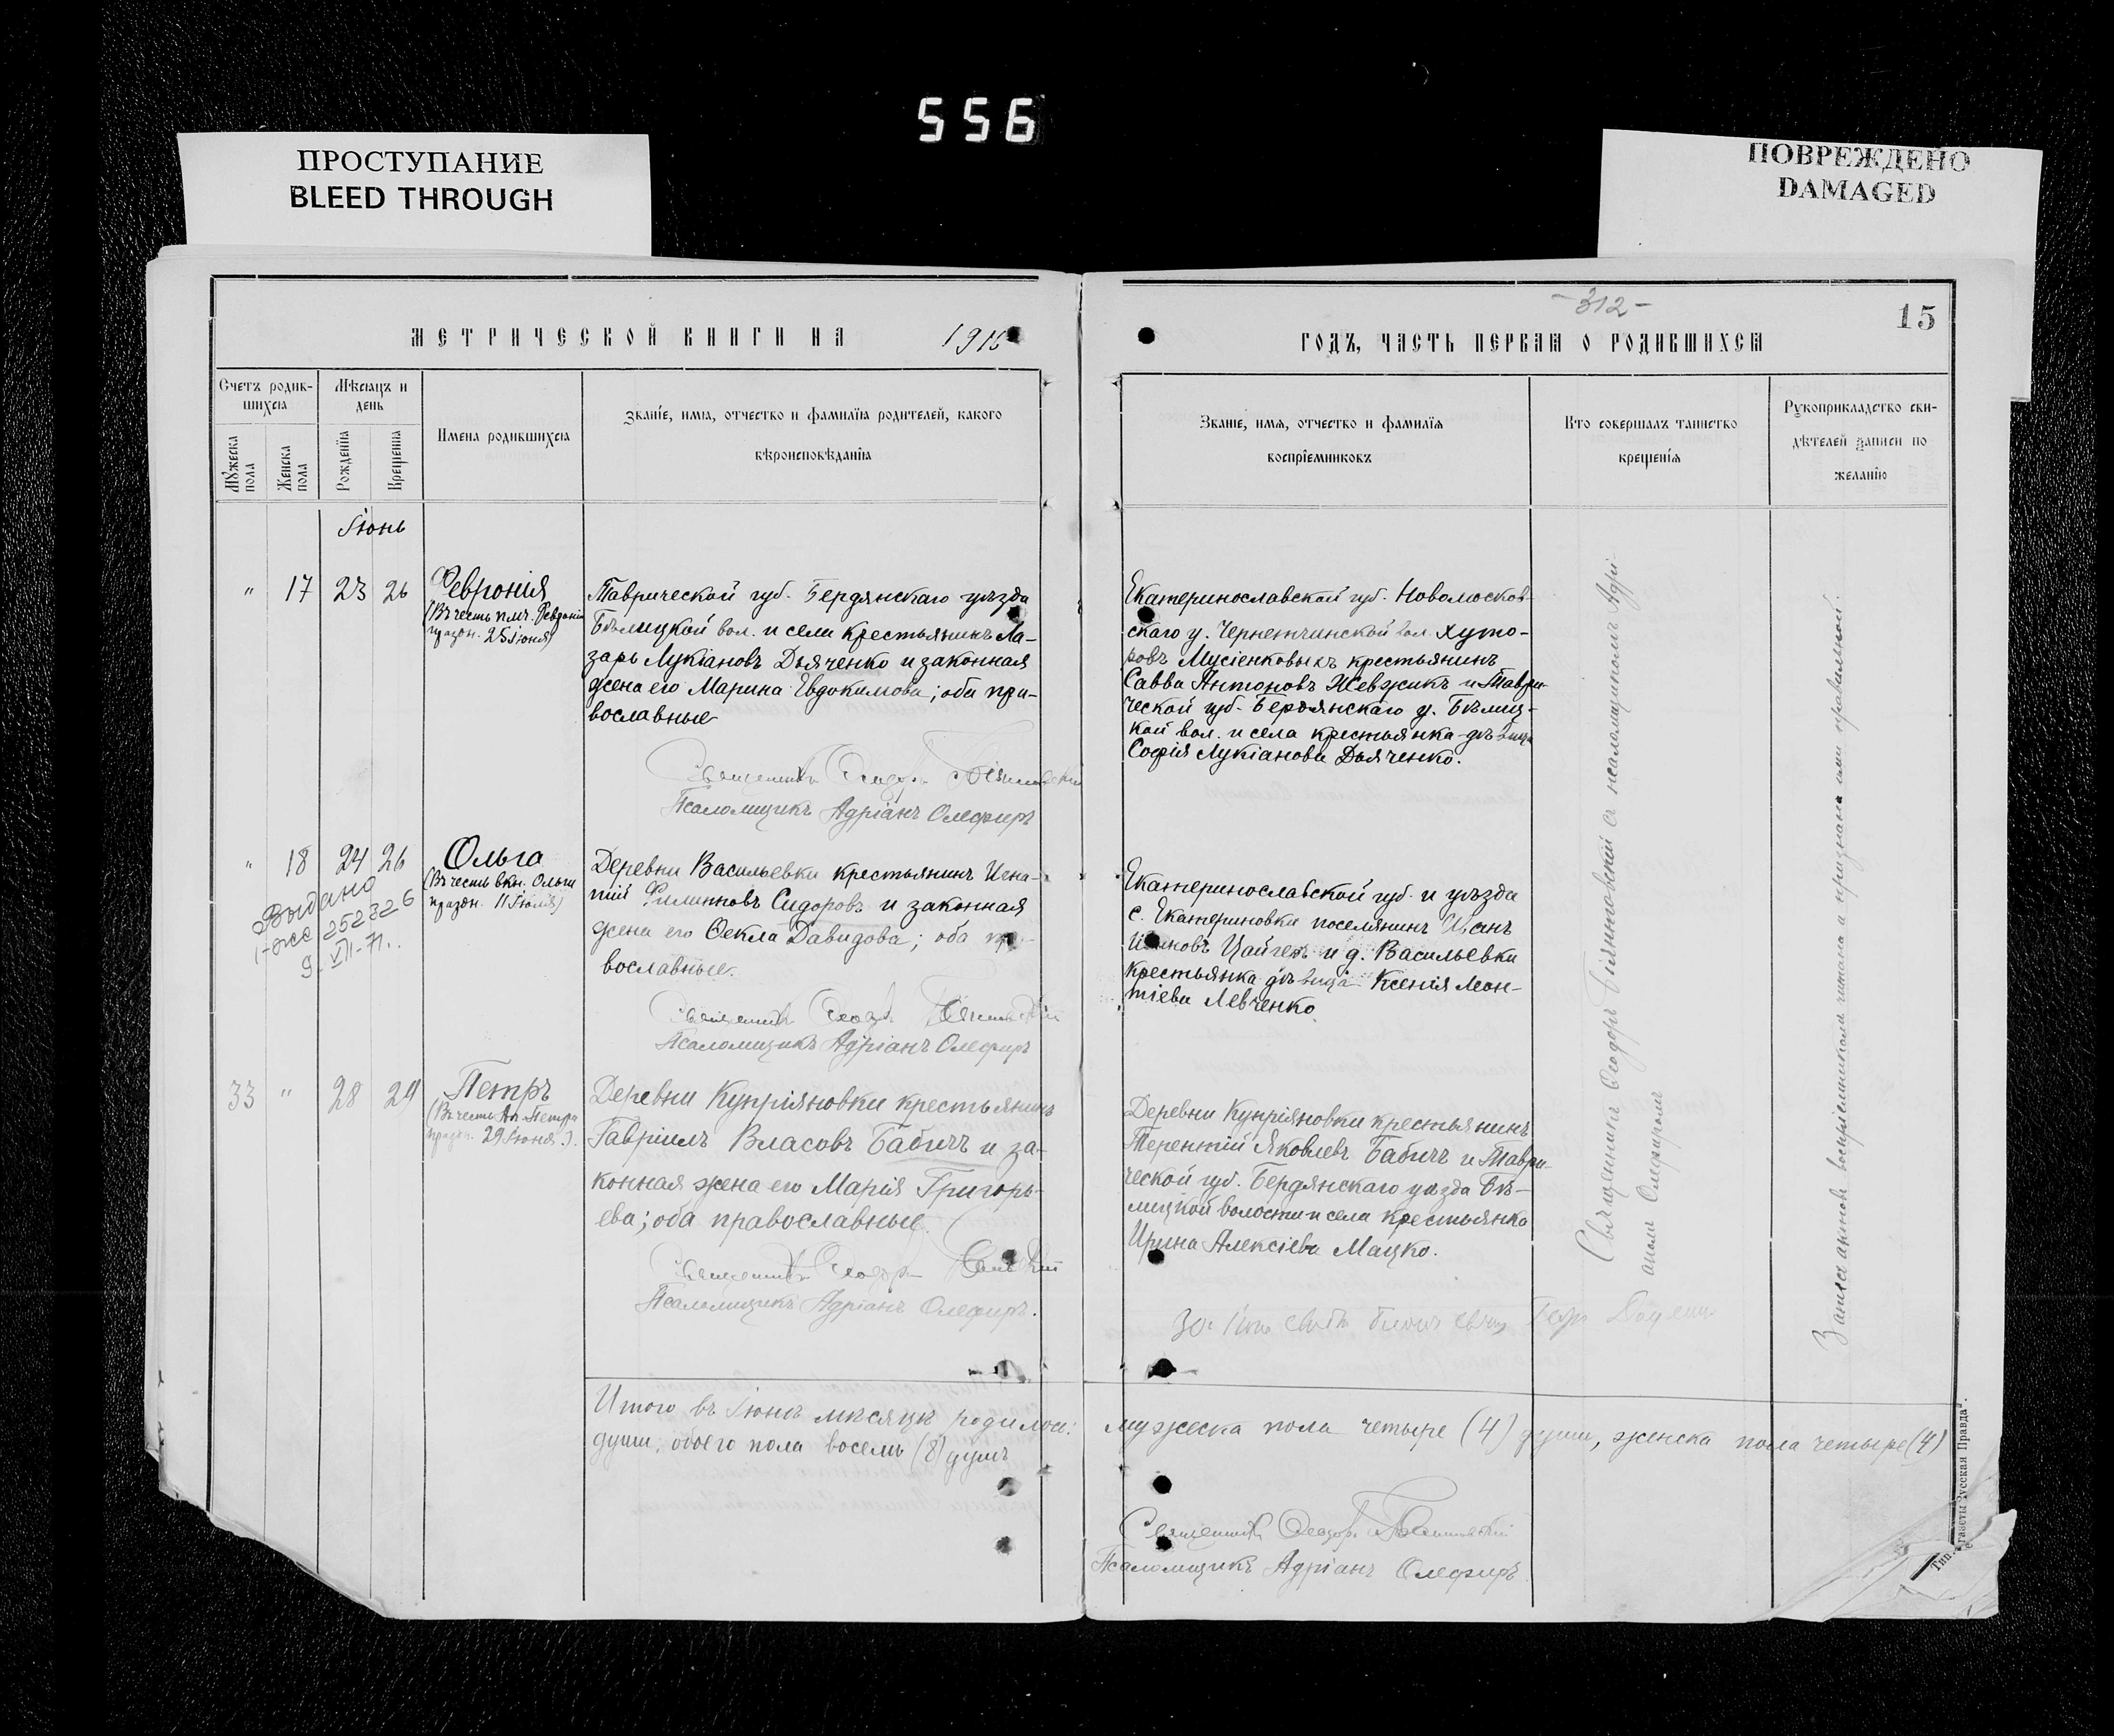 556
ПРОСТУПАНИЕ
BLEED THROUGH
ПОВРЕЖДЕНО
DAMAGED
-312-
15
МЕТРИЧЕСКОЙ КНИГИ НА 1915
ГОДЪ, ЧАСТЬ ПЕРВАЯ О РОДИВШИХСЯ
Счетъ родив-
шихся
Мужеска
пола
Женска
пола
Мѣсяцъ и
день
Рожденія
Крещенія
Имена родившихся
Званіе, имя, отчество и фамилія родителей, какого
вѣроисповѣданія
Званіе, имя, отчество и фамилія
воспріемниковъ
Кто совершалъ таинство
крещенія
Рукоприкладство сви-
дѣтелей записи по
желанію
Іюнь
" 17 23 26
Февронія
(Въ честь пмч. Февроніи
празон. 25 Іюня)
Таврической губ. Бердянскаго уѣзда
Бѣлицкой вол. и села крестьянинъ Ла-
зарь Лукіановъ Дьяченко и законная
жена его Марина Евдокимова; оба пра-
вославные
Священникъ Ѳеодоръ
Псаломщикъ Адріанъ Олефиръ
Екатеринославской губ. Новомосков-
скаго у. Чернетчинской вол. хуто-
ровъ Мусіенковыхъ крестьянинъ
Савва Антоновъ Жевжикъ и Таври-
ческой губ. Бердянскаго у. Бѣлиц-
кой вол. и села крестьянка-дѣвица
Софія Лукіанова Дьяченко.
" 18 24 26
Ольга
(Въ честь вкн. Ольги
празон. 11 Іюля)
Выдано
1-жс 252326
9-VII-71.
Деревни Васильевки крестьянинъ Игна-
тій Филипповъ Сидоровъ и законная
жена его Ѳекла Давидова; оба пра-
вославные.
Священникъ Ѳеодоръ
Псаломщикъ Адріанъ Олефиръ
Екатеринославской губ. и уѣзда
с. Екатериновки поселянинъ Иванъ
Ивановъ Цайгеръ и д. Васильевки
крестьянка дѣвица Ксенія Леон-
тіева Левченко
33 " 28 29
Петръ
(Въ честь Ап. Петра
празон. 29 Іюня).
Деревни Купріяновки крестьянинъ
Гавріилъ Власовъ Бабичъ и за-
конная жена его Марія Григорь-
ева; оба православные.
Священникъ Ѳеодоръ
Псаломщикъ Адріанъ Олефиръ.
Деревни Купріяновки крестьянинъ
Терентій Яковлевъ Бабичъ и Таври-
ческой губ. Бердянскаго уѣзда Бѣ-
лицкой волости и села крестьянка
Ирина Алексіева Мацко.
Священникъ Ѳеодоръ съ псаломщикомъ Адрі-
аномъ Олефиромъ
Запись актовъ воспріемниками читана и признана ими правильной.
Итого въ Іюнѣ мѣсяцѣ родилось: мужеска пола четыре (4) души, женска пола четыре (4)
души, обоего пола восемь (8) душъ
Священникъ Ѳеодоръ
Псаломщикъ Адріанъ Олефиръ
Тип. газеты „Русская Правда".